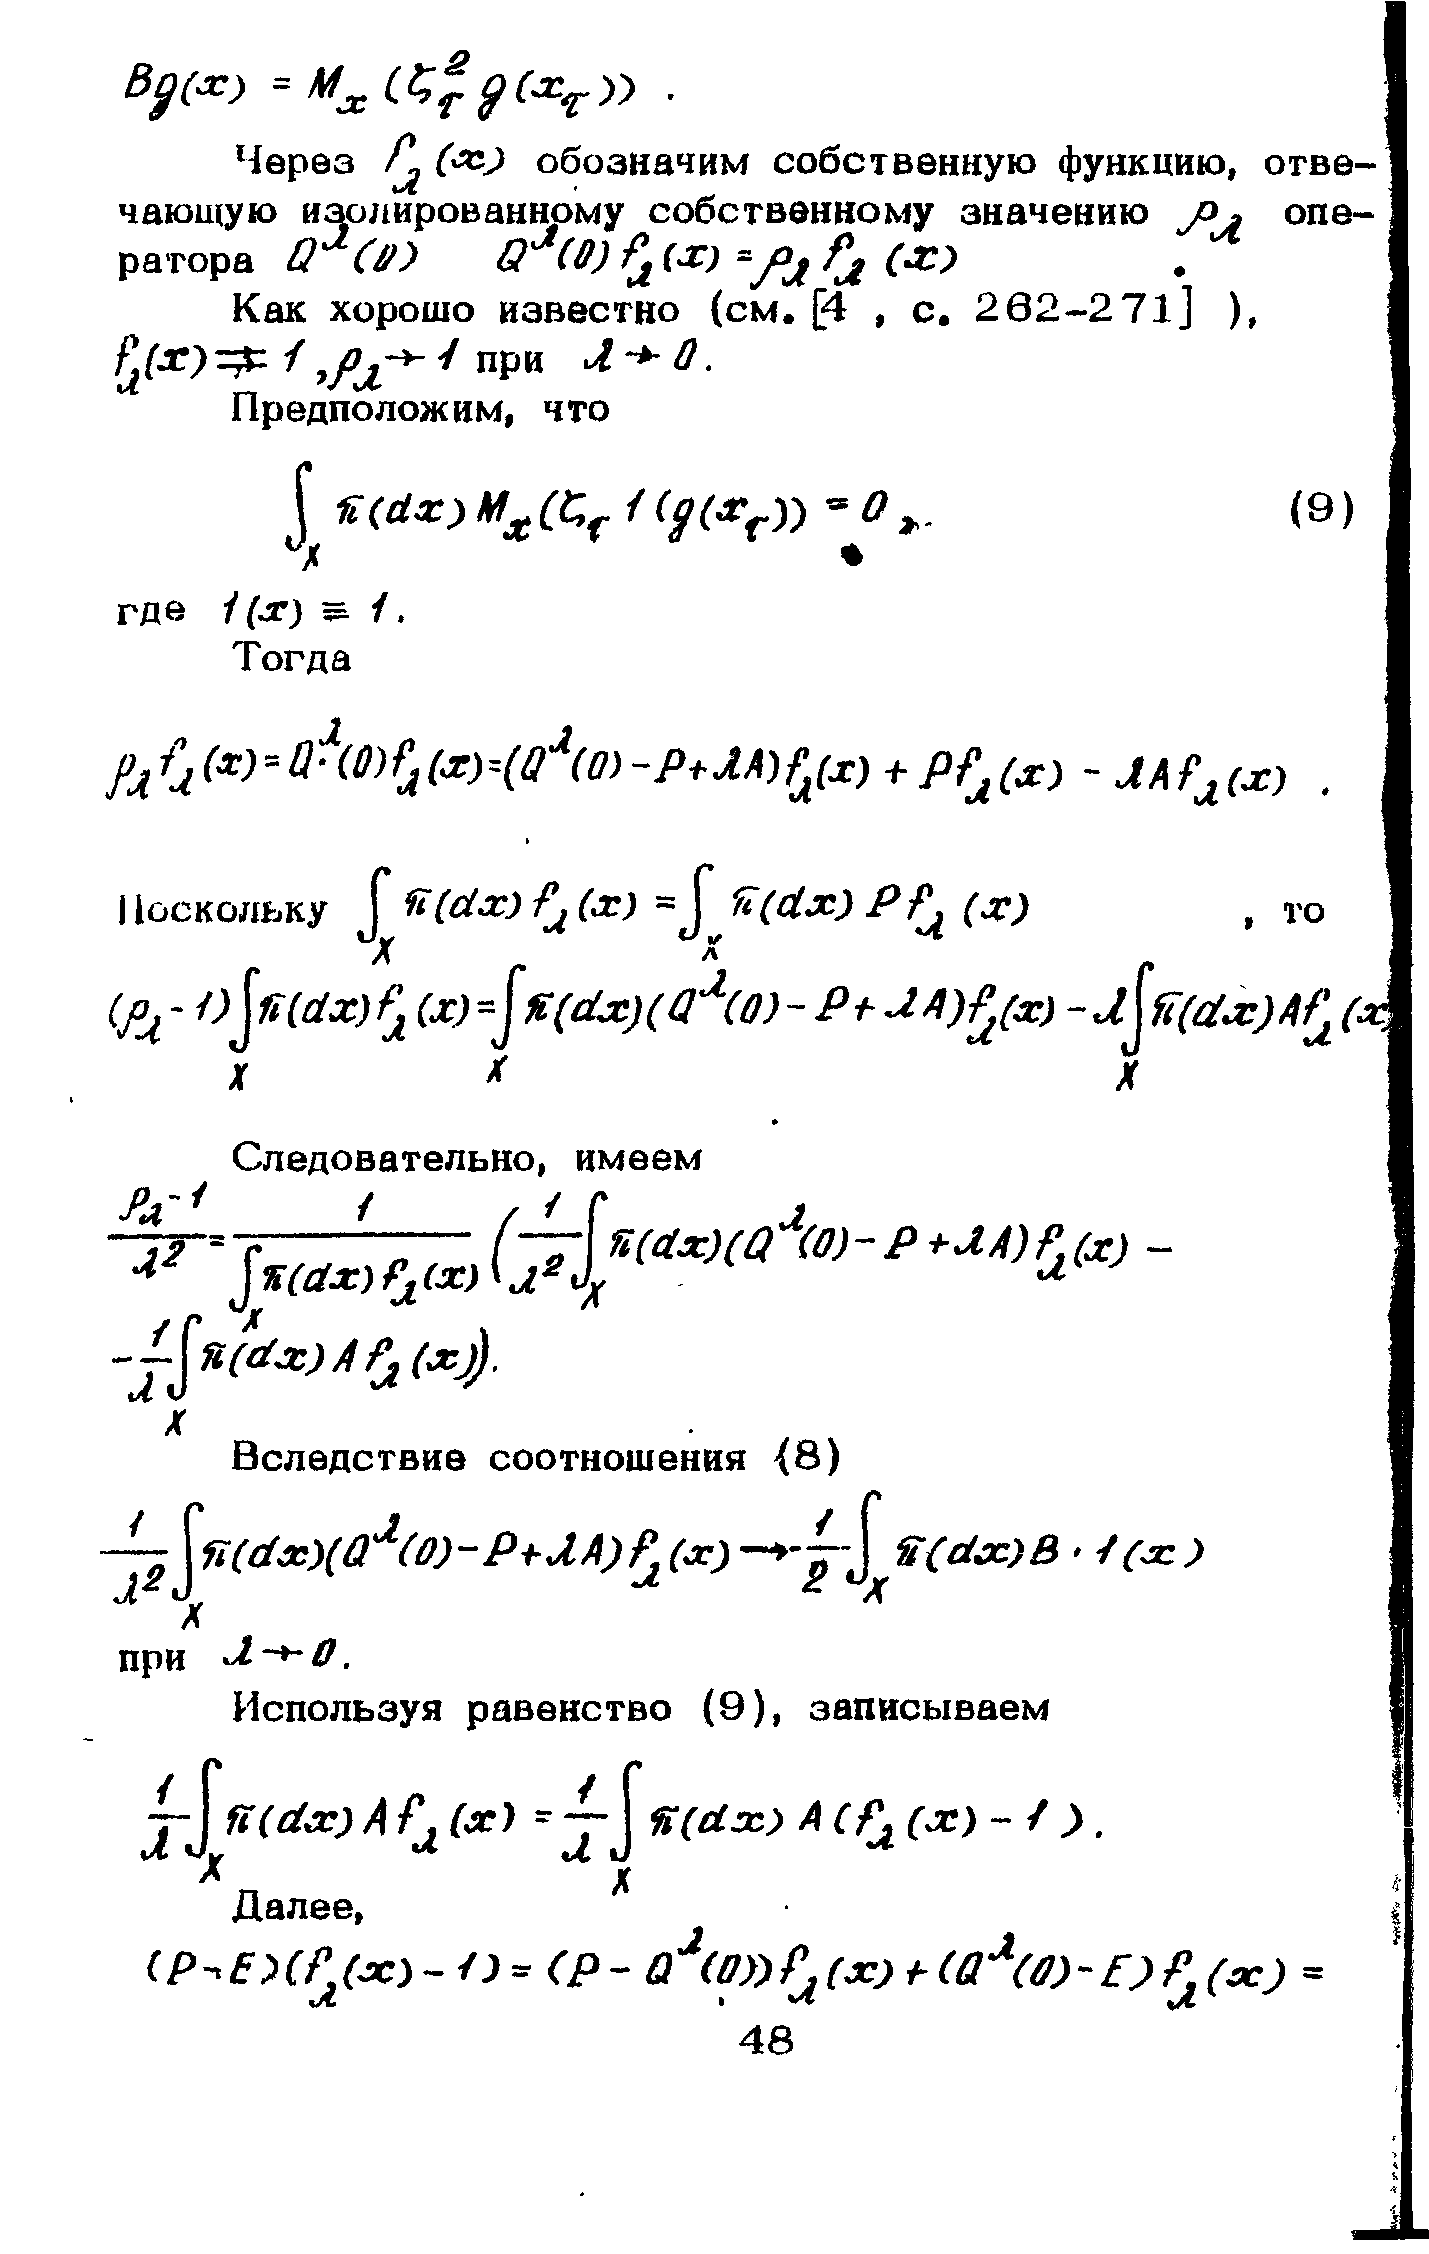 Bg(x) = Mₓ(ζ_τ² g(x_τ)) .
Через f_λ(x) обозначим собственную функцию, отве-
чающую изолированному собственному значению ρ_λ опе-
ратора Q^λ(0) Q^λ(0) f_λ(x) = ρ_λ f_λ (x) .
Как хорошо известно (см. [4 , с. 262-271] ),
f_λ(x) ⇉ 1 , ρ_λ → 1 при λ → 0.
Предположим, что
∫_X π(dx) Mₓ(ζ_τ 1(g(x_τ)) = 0 , (9)
где 1(x) ≡ 1.
Тогда
ρ_λ f_λ(x) = Q^λ(0) f_λ(x) = (Q^λ(0) - P + λA) f_λ(x) + P f_λ(x) - λA f_λ(x) .
Поскольку ∫_X π(dx) f_λ(x) = ∫_X π(dx) P f_λ (x) , то
(ρ_λ - 1) ∫_X π(dx) f_λ(x) = ∫_X π(dx)(Q^λ(0) - P + λA) f_λ(x) - λ ∫_X π(dx) A f_λ(x
Следовательно, имеем
(ρ_λ - 1)/λ² = 1/(∫_X π(dx) f_λ(x)) ( 1/λ² ∫_X π(dx)(Q^λ(0) - P + λA) f_λ(x) -
- 1/λ ∫_X π(dx) A f_λ(x)).
Вследствие соотношения (8)
1/λ² ∫_X π(dx)(Q^λ(0) - P + λA) f_λ(x) → 1/2 ∫_X π(dx) B · 1(x)
при λ → 0.
Используя равенство (9), записываем
1/λ ∫_X π(dx) A f_λ(x) = 1/λ ∫_X π(dx) A (f_λ(x) - 1 ).
Далее,
(P - E)(f_λ(x) - 1) = (P - Q^λ(0)) f_λ(x) + (Q^λ(0) - E) f_λ(x) =
48